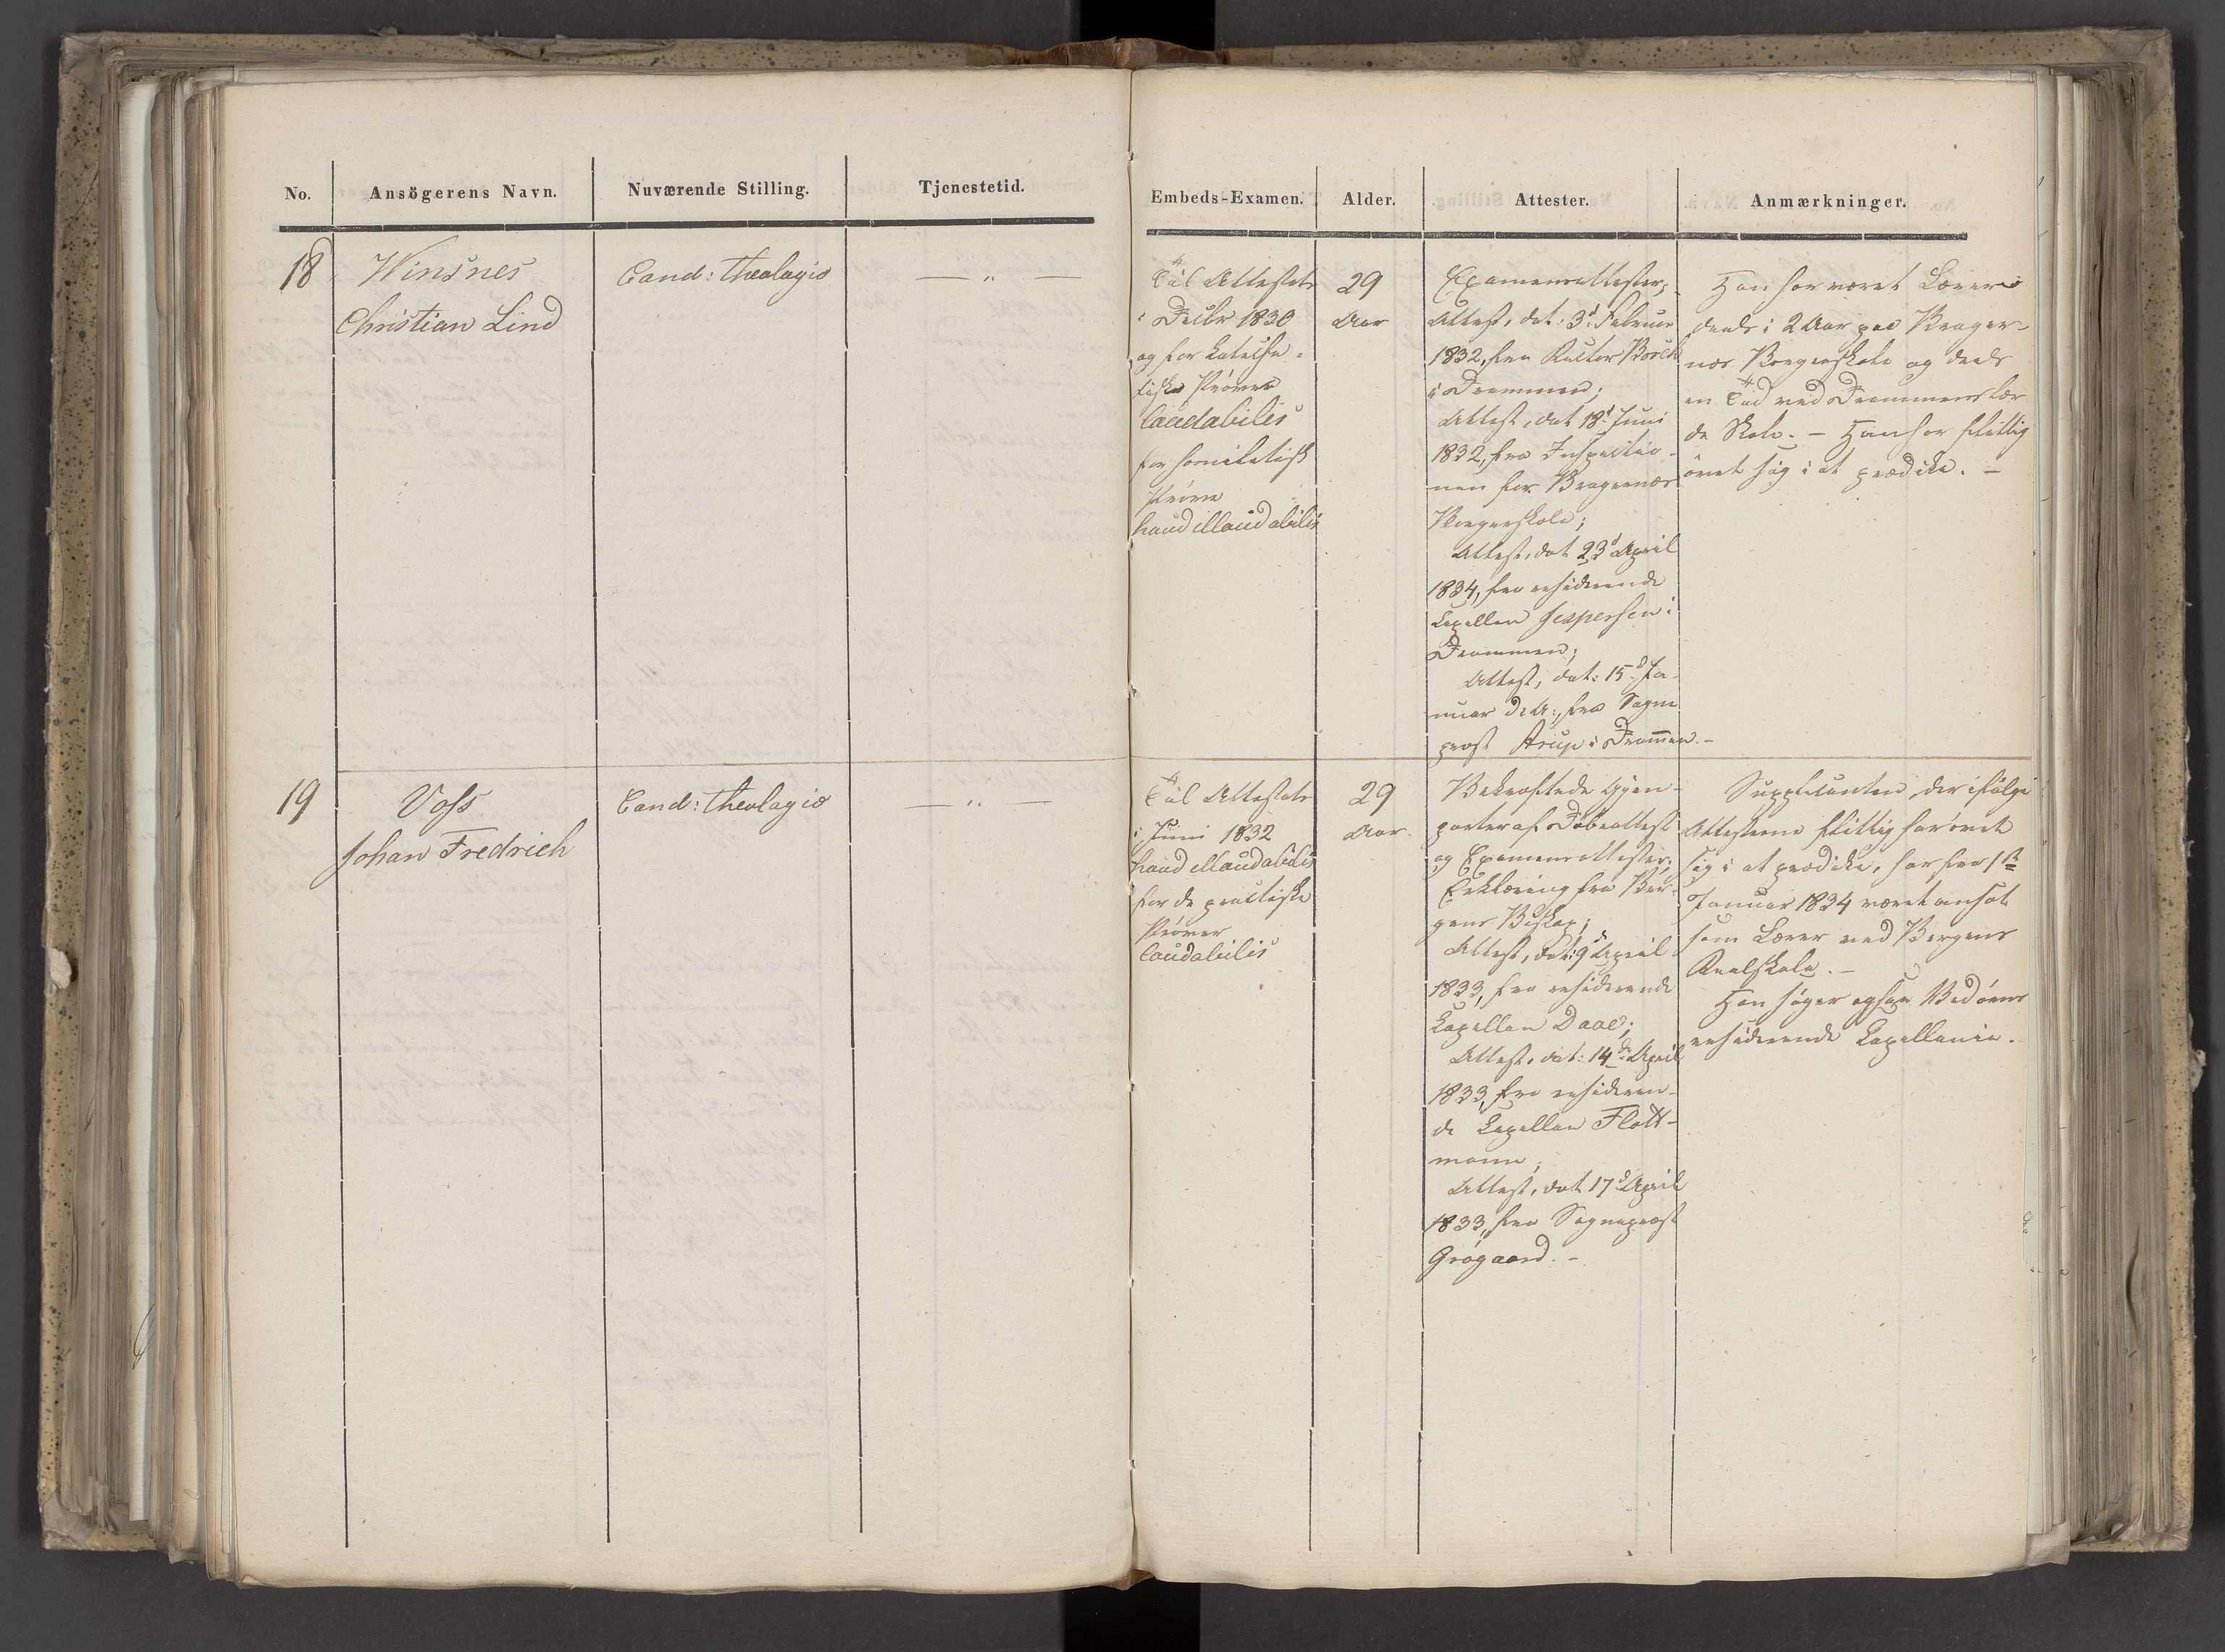 No.
Ansögerens Navn.
Nuværende Stilling.
Tjenestetid.
Embeds-Examen.
Alder.
Attester.
Anmærkninger.
18
Winsnes
Christian Lind
Cand: theologiæ
— „ —
Til Attestats
i Decbr 1830
og for kateche-
tiske Prøver
laudabilis
for homiletisk
Prøve
haud illaudabilis
29
Aar
Examensattester;
Attest, dat: 3d Februar
1832, fra Rector Borch
i Drammen;
Attest, dat 18d Juni
1832, fra Inspectio-
nen for Bragernæs
Borgerskole;
Attest, dat 23d April
1834, fra residerende
Capellan Jespersen i
Drammen;
Attest, dat: 15d Ja-
nuar d: A:, fra Sogne
præst Arup i Drammen.-
Han har været Lærer
deels i 2 Aar paa Brager-
næs Borgerskole og deels
en Tid ved Drammens lær
de Skole. - Han har flittig
øvet sig i at prædike. -
19
Voss
Johan Fredrich
Cand: theologiæ
— „ —
Til Attestats
i Juni 1832
haud illaudabilis
for de practiske
Prøver
laudabilis
29
Aar.
Bekræftede Gjen-
parter af Døbeattest
og Examensattester;
Erklæring fra Ber-
gens Biskop;
Attest, dat: 9d April
1833, fra residerende
Capellan Daae;
Attest, dat: 14de April
1833, fra resideren-
de Capellan Flott-
mann;
Attest, dat 17d April
1833, fra Sognepræst
Grøgaard. -
Supplicanten, der ifølge
Attesterne flittig har øvet
sig i at prædike, har fra 1ste
Januar 1834 været ansat
som Lærer ved Bergens
Realskole. -
Han søger ogsaa Vadøens
residerende Capellanie.